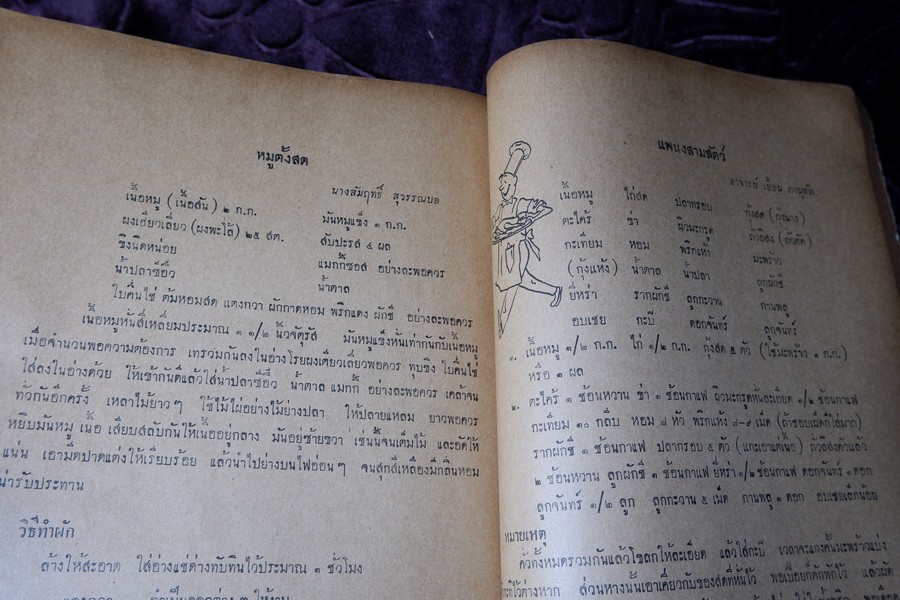 หมูตั้งสด
นางสัมฤทธิ์ สุวรรณบล
เนื้อหมู (เนื้อสัน) ๒ ก.ก. มันหมูแข็ง ๑ ก.ก.
ผงเฮี่ยวเลี่ยว (ผงพะโล้) ๒๕ สต. สับปะรส ๕ ผล
ขิงนิดหน่อย แมกกี้ซอส อย่างละพอควร
น้ำปลาซีอิ๊ว น้ำตาล
ใบคื่นไช่ ต้มหอมสด แตงกวา ผักกาดหอม พริกแดง ผักชี อย่างละพอควร
เนื้อหมูหั่นสี่เหลี่ยมประมาณ ๑ ๑/๒ นิ้วจัตุรัส มันหมูแข็งหั่นเท่ากันกับเนื้อหมู
เมื่อจำนวนพอความต้องการ เทรวมกันลงในอ่างโรยผงเฮี่ยวเลี่ยวพอควร ทุบขิง ใบคื่นไช่
ใส่ลงในอ่างด้วย ให้เข้ากันดีแล้วใส่น้ำปลาซีอิ๊ว น้ำตาล แมกกี้ อย่างละพอควร เคล้าจน
ทั่วกันอีกครั้ง เหลาไม้ยาวๆ ใช้ไม้ไผ่อย่างไม้ย่างปลา ให้ปลายแหลม ยาวพอควร
หยิบมันหมู เนื้อ เสียบสลับกันให้เนื้ออยู่กลาง มันอยู่ซ้ายขวา เช่นนี้จนเต็มไม้ และอัดให้
แน่น เอามีดปาดแต่งให้เรียบร้อย แล้วนำไปย่างบนไฟอ่อนๆ จนสุกสีเหลืองมีกลิ่นหอม
น่ารับประทาน
วิธีทำผัก
ล้างให้สะอาด ใส่อ่างแช่ด่างทับทิมไว้ประมาณ ๑ ชั่วโมง
แพนงสามสัตว์
อาจารย์ เยื้อน ภาณุทัต
เนื้อหมู ไก่สด ปลากรอบ กุ้งสด (กุ้งนาง)
ตะไคร้ ข่า ผิวมะกรูด ถั่วลิสง (ถั่วคั่ว)
กะเทียม หอม พริกแห้ง มะพร้าว
(กุ้งแห้ง) น้ำตาล น้ำปลา ลูกผักชี
ยี่หร่า รากผักชี ลูกกะวาน กานพลู
อบเชย กะปี ดอกจันทร์ ลูกจันทร์
๑. เนื้อหมู ๑/๒ ก.ก. ไก่ ๑/๒ ก.ก. กุ้งสด ๕ ตัว (ใช้มะพร้าว ๑ ก.ก.)
หรือ ๑ ผล
๒. ตะไคร้ ๑ ช้อนหวาน ข่า ๑ ช้อนกาแฟ ผิวมะกรูดหั่นละเอียด ๑/๒ ช้อนกาแฟ
กะเทียม ๓๐ กลีบ หอม ๘ หัว พริกแห้ง ๘-๙ เม็ด (ถ้าชอบเผ็ดก็ใส่มาก)
รากผักชี ๑ ช้อนกาแฟ ปลากรอบ ๕ ตัว (แกะเอาแต่เนื้อ) ถั่วลิสงคั่วแล้ว
๒ ช้อนหวาน ลูกผักชี ๑ ช้อนกาแฟ ยี่หร่า ๑/๒ ช้อนกาแฟ ดอกจันทร์ ๑ ดอก
ลูกจันทร์ ๑/๒ ลูก ลูกกะวาน ๕ เม็ด กานพลู ๑ ดอก อบเชยเล็กน้อย
หมายเหตุ
คั่วทั้งหมดรวมกันแล้วโขลกให้ละเอียด แล้วใส่กะปี เวลาจะแกงคั้นมะพร้าวแบ่ง
ต่างหาก ส่วนหางนั้นเอาเคี่ยวกับของสดที่หั่นไว้ พอเปื่อยก็ตักพักไว้ แล้วผัด